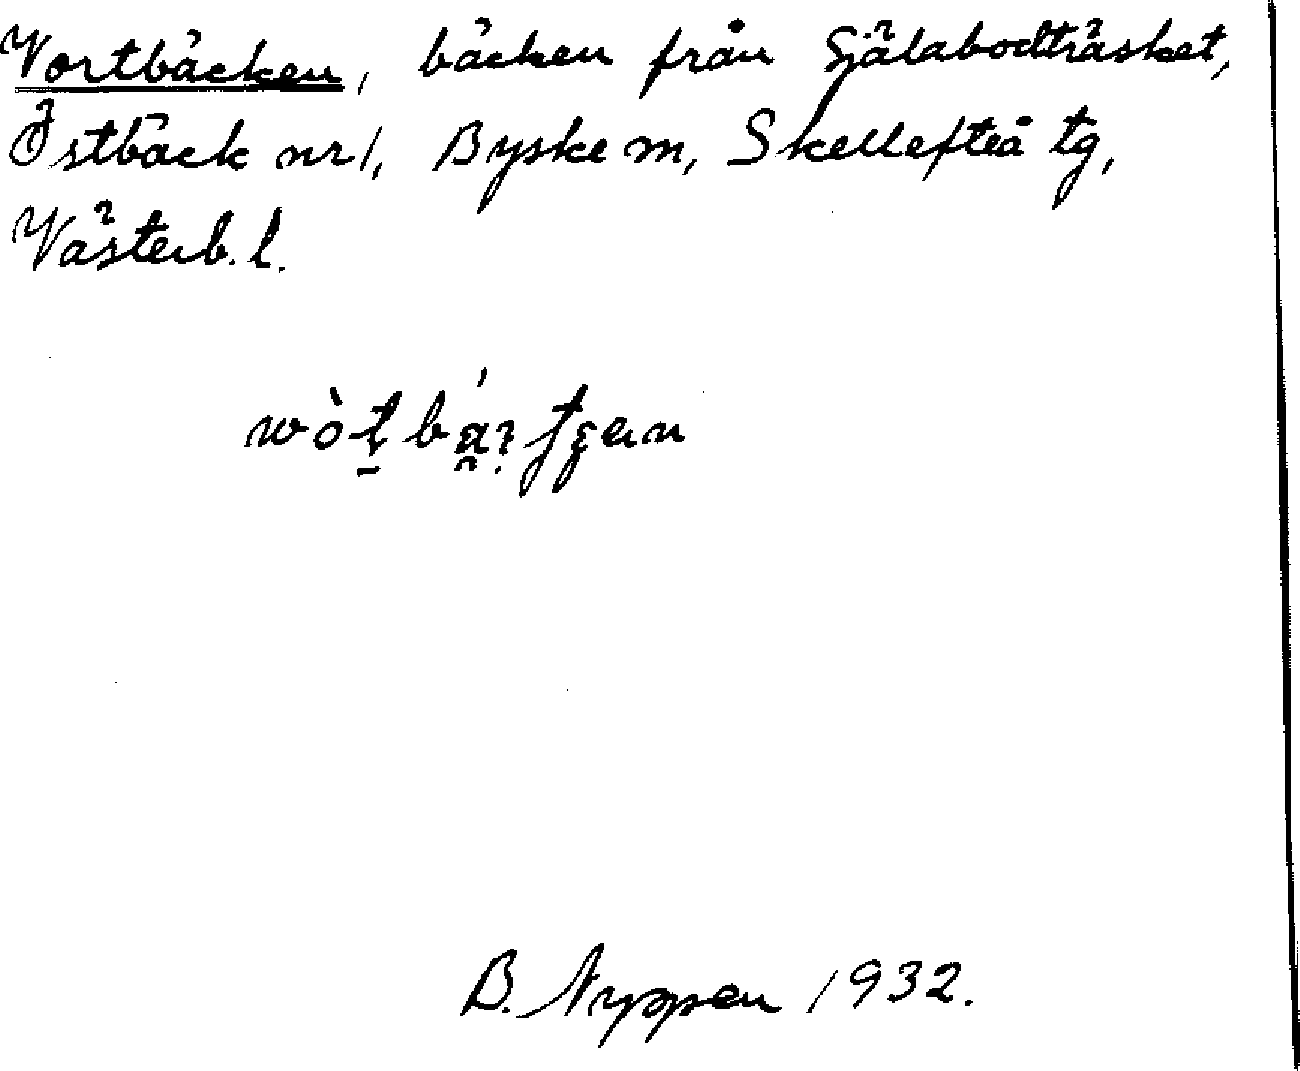 Vortbäcken, bäcken från Själabodträsket,
Östbäck nr 1, Byske m, Skellefteå tg,
Västerb. l.
B. Nyppen 1932.